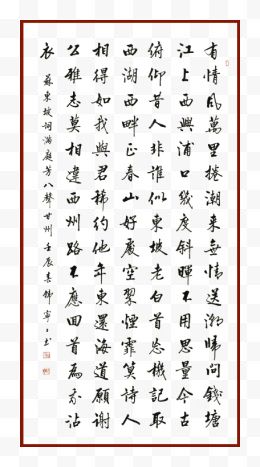 有情風萬里捲潮來無情送潮歸問錢塘
江上西興浦口幾度斜暉不用思量今古
俯仰昔人非誰似東坡老白首忘機記取
西湖西畔正春山好處空翠煙霏算詩人
相得如我與君稀約他年東還海道願謝
公雅志莫相違西州路不應回首為我沾
衣 蘇東坡詞滿庭芳八聲甘州壬辰春錦寧